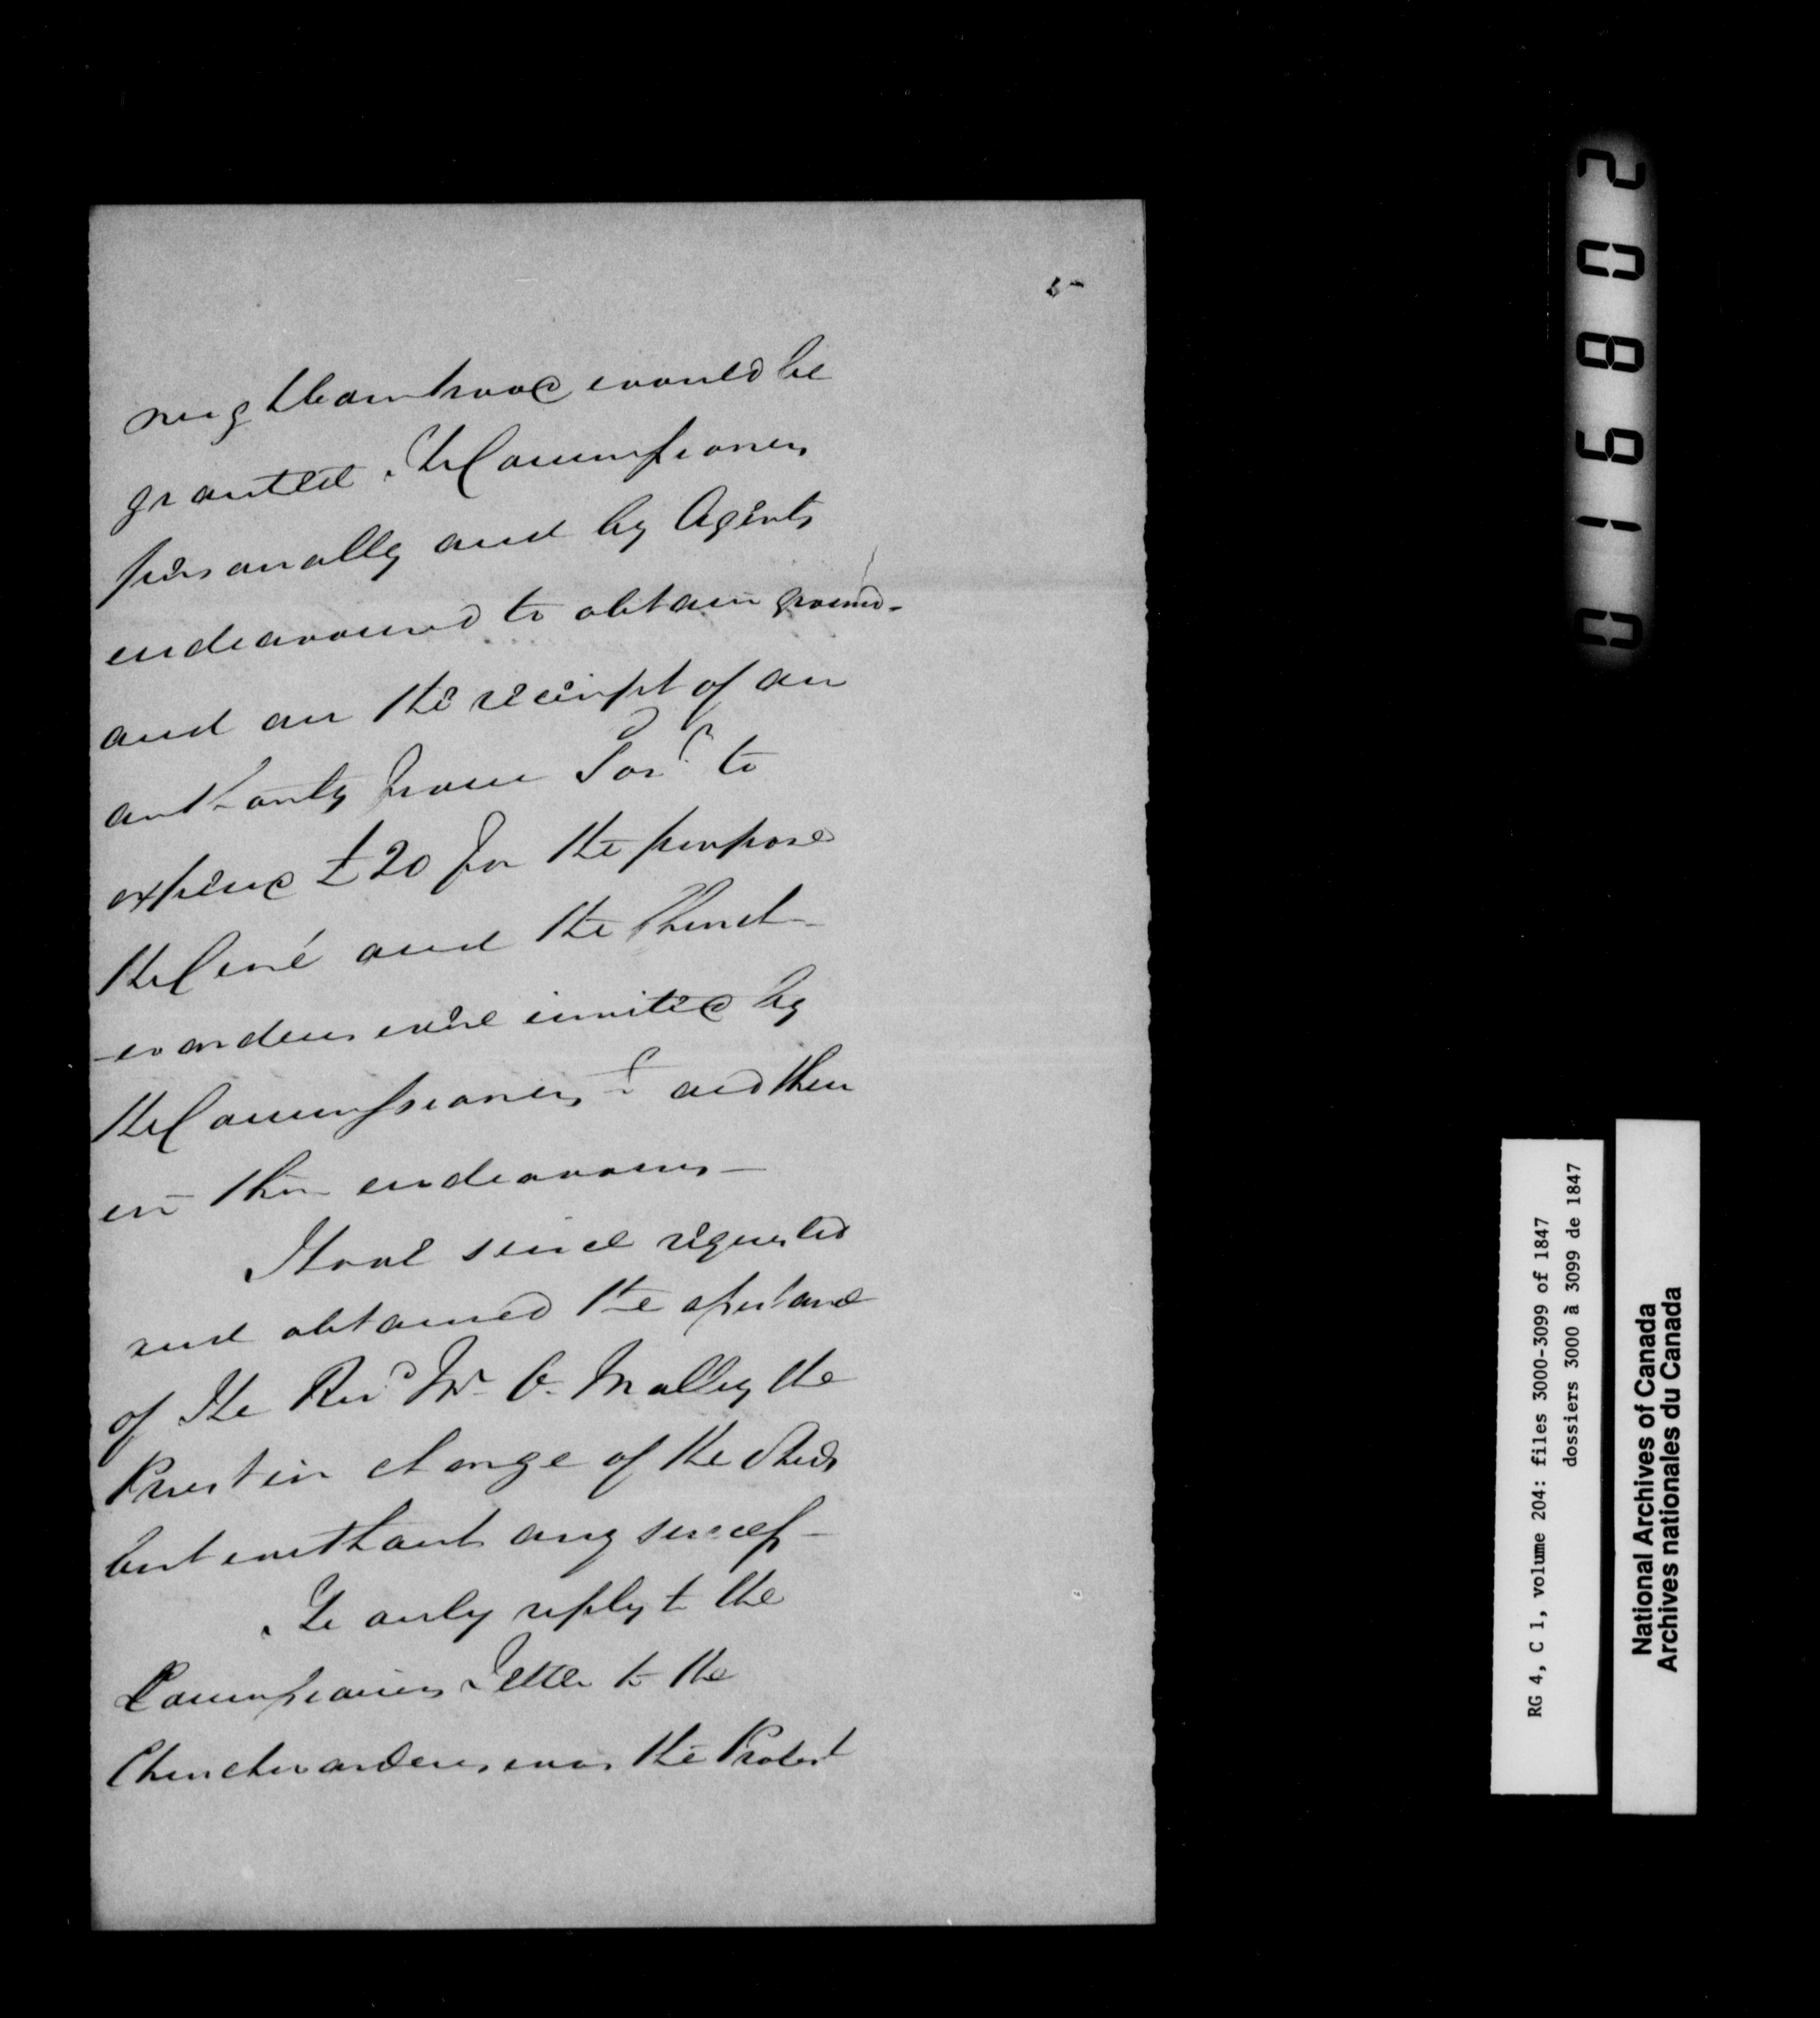 5
neighbourhood would be
granted. The Commissioners
personally and by Agents
endeavoured to obtain ground.
and on the receipt of an
authority from Gov.t to
expend £20 for the purpose
the Curé and the Church-
-wardens were invited by
the Commissioners to aid them
in their endeavours—
I have since requested
and obtained the assistance
of the Rev.d Mr. O. Malley the
Priest in charge of the Sheds
but without any success—
The only reply to the
Commissioners Letter to the
Churchwardens was the Protest
016802
RG 4, C 1, volume 204: files 3000-3099 of 1847
dossiers 3000 à 3099 de 1847
National Archives of Canada
Archives nationales du Canada